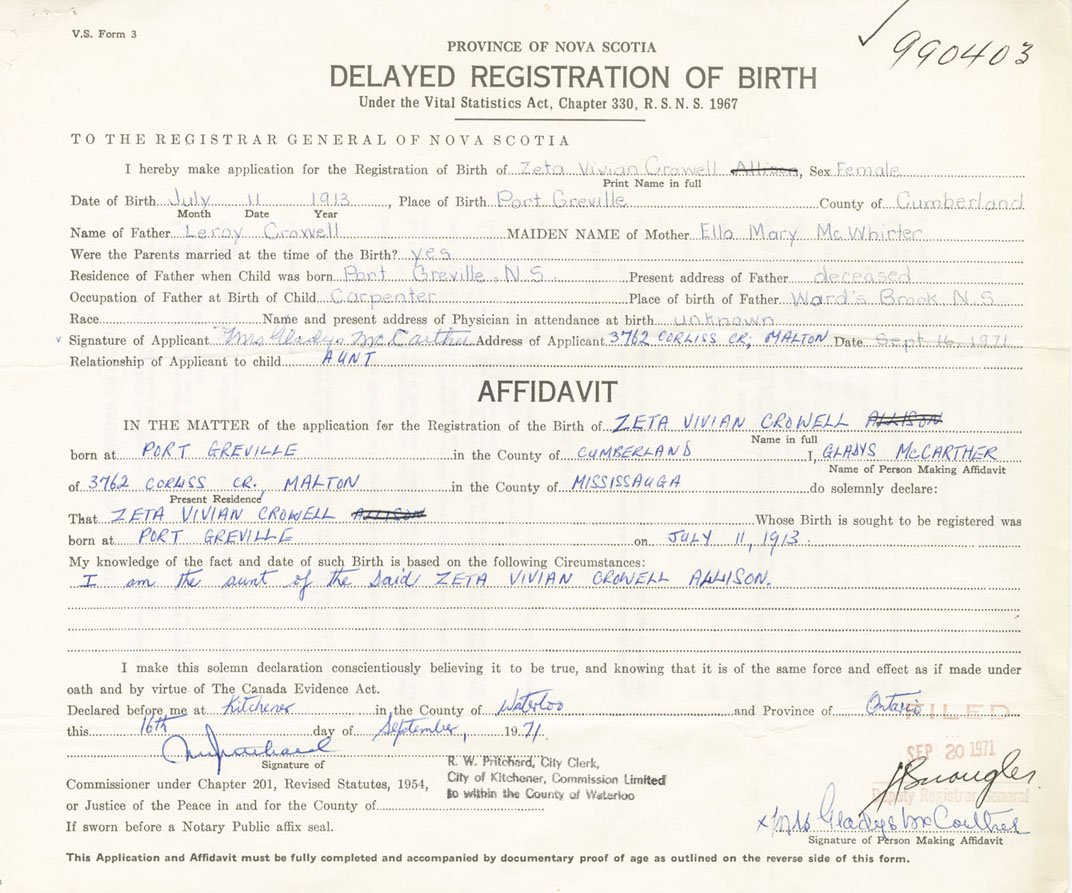 V.S. Form 3
990403
PROVINCE OF NOVA SCOTIA
DELAYED REGISTRATION OF BIRTH
Under the Vital Statistics Act, Chapter 330, R. S. N. S. 1967
TO THE REGISTRAR GENERAL OF NOVA SCOTIA
I hereby make application for the Registration of Birth of Zeta Vivian Crowell Allison, Sex Female
Print Name in full
Date of Birth July 11 1913, Place of Birth Port Greville County of Cumberland
Month Date Year
Name of Father Leroy Crowell MAIDEN NAME of Mother Ella Mary McWhirter
Were the Parents married at the time of the Birth? yes
Residence of Father when Child was born Port Greville, N.S. Present address of Father deceased
Occupation of Father at Birth of Child Carpenter Place of birth of Father Ward's Brook, N.S
Race Name and present address of Physician in attendance at birth unknown
Signature of Applicant Mrs Gladys McCarther Address of Applicant 3762 CORLISS CR, MALTON Date Sept. 16, 1971
Relationship of Applicant to child AUNT
AFFIDAVIT
IN THE MATTER of the application for the Registration of the Birth of ZETA VIVIAN CROWELL ALLISON
Name in full
born at PORT GREVILLE in the County of CUMBERLAND I, GLADYS McCARTHER
Name of Person Making Affidavit
of 3762 CORLISS CR, MALTON in the County of MISSISSAUGA do solemnly declare:
Present Residence
That ZETA VIVIAN CROWELL ALLISON Whose Birth is sought to be registered was
born at PORT GREVILLE on JULY 11, 1913.
My knowledge of the fact and date of such Birth is based on the following Circumstances:
I am the aunt of the said ZETA VIVIAN CROWELL ALLISON.
I make this solemn declaration conscientiously believing it to be true, and knowing that it is of the same force and effect as if made under
oath and by virtue of The Canada Evidence Act.
Declared before me at Kitchener in the County of Waterloo and Province of Ontario
FILED
this 16th day of September, 1971.
SEP 20 1971
Signature of
R. W. Pritchard, City Clerk,
City of Kitchener, Commission Limited
to within the County of Waterloo
Commissioner under Chapter 201, Revised Statutes, 1954,
or Justice of the Peace in and for the County of
Deputy Registrar General
If sworn before a Notary Public affix seal.
x Mrs Gladys McCarther
Signature of Person Making Affidavit
This Application and Affidavit must be fully completed and accompanied by documentary proof of age as outlined on the reverse side of this form.